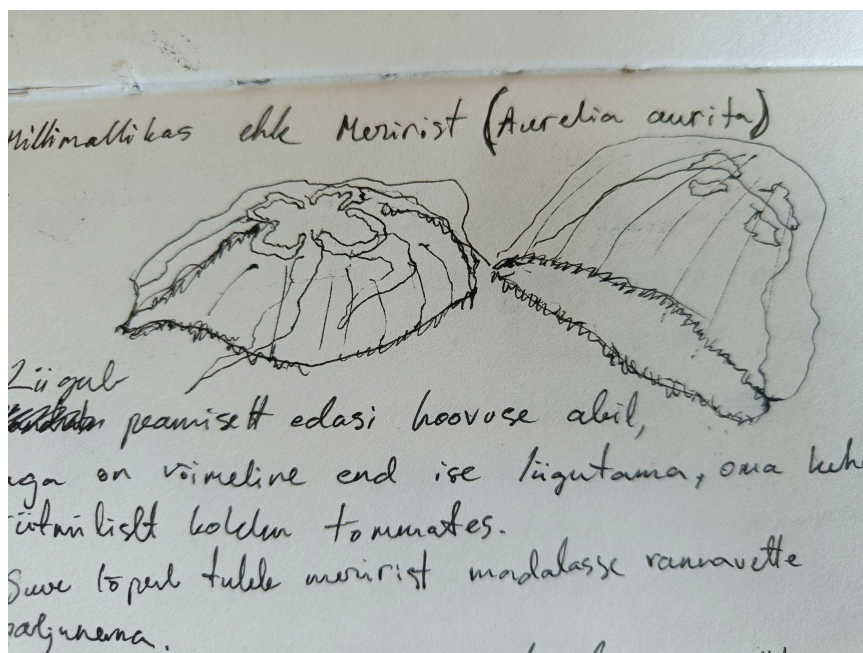 Millimallikas ehk Meririst (Aurelia aurita)
Liigub
peamiselt edasi hoovuse abil,
aga on võimeline end ise liigutama, oma keha
rütmiliselt kokku tõmmates.
Suve lõpul tuleb meririst madalasse rannavette
paljunema.